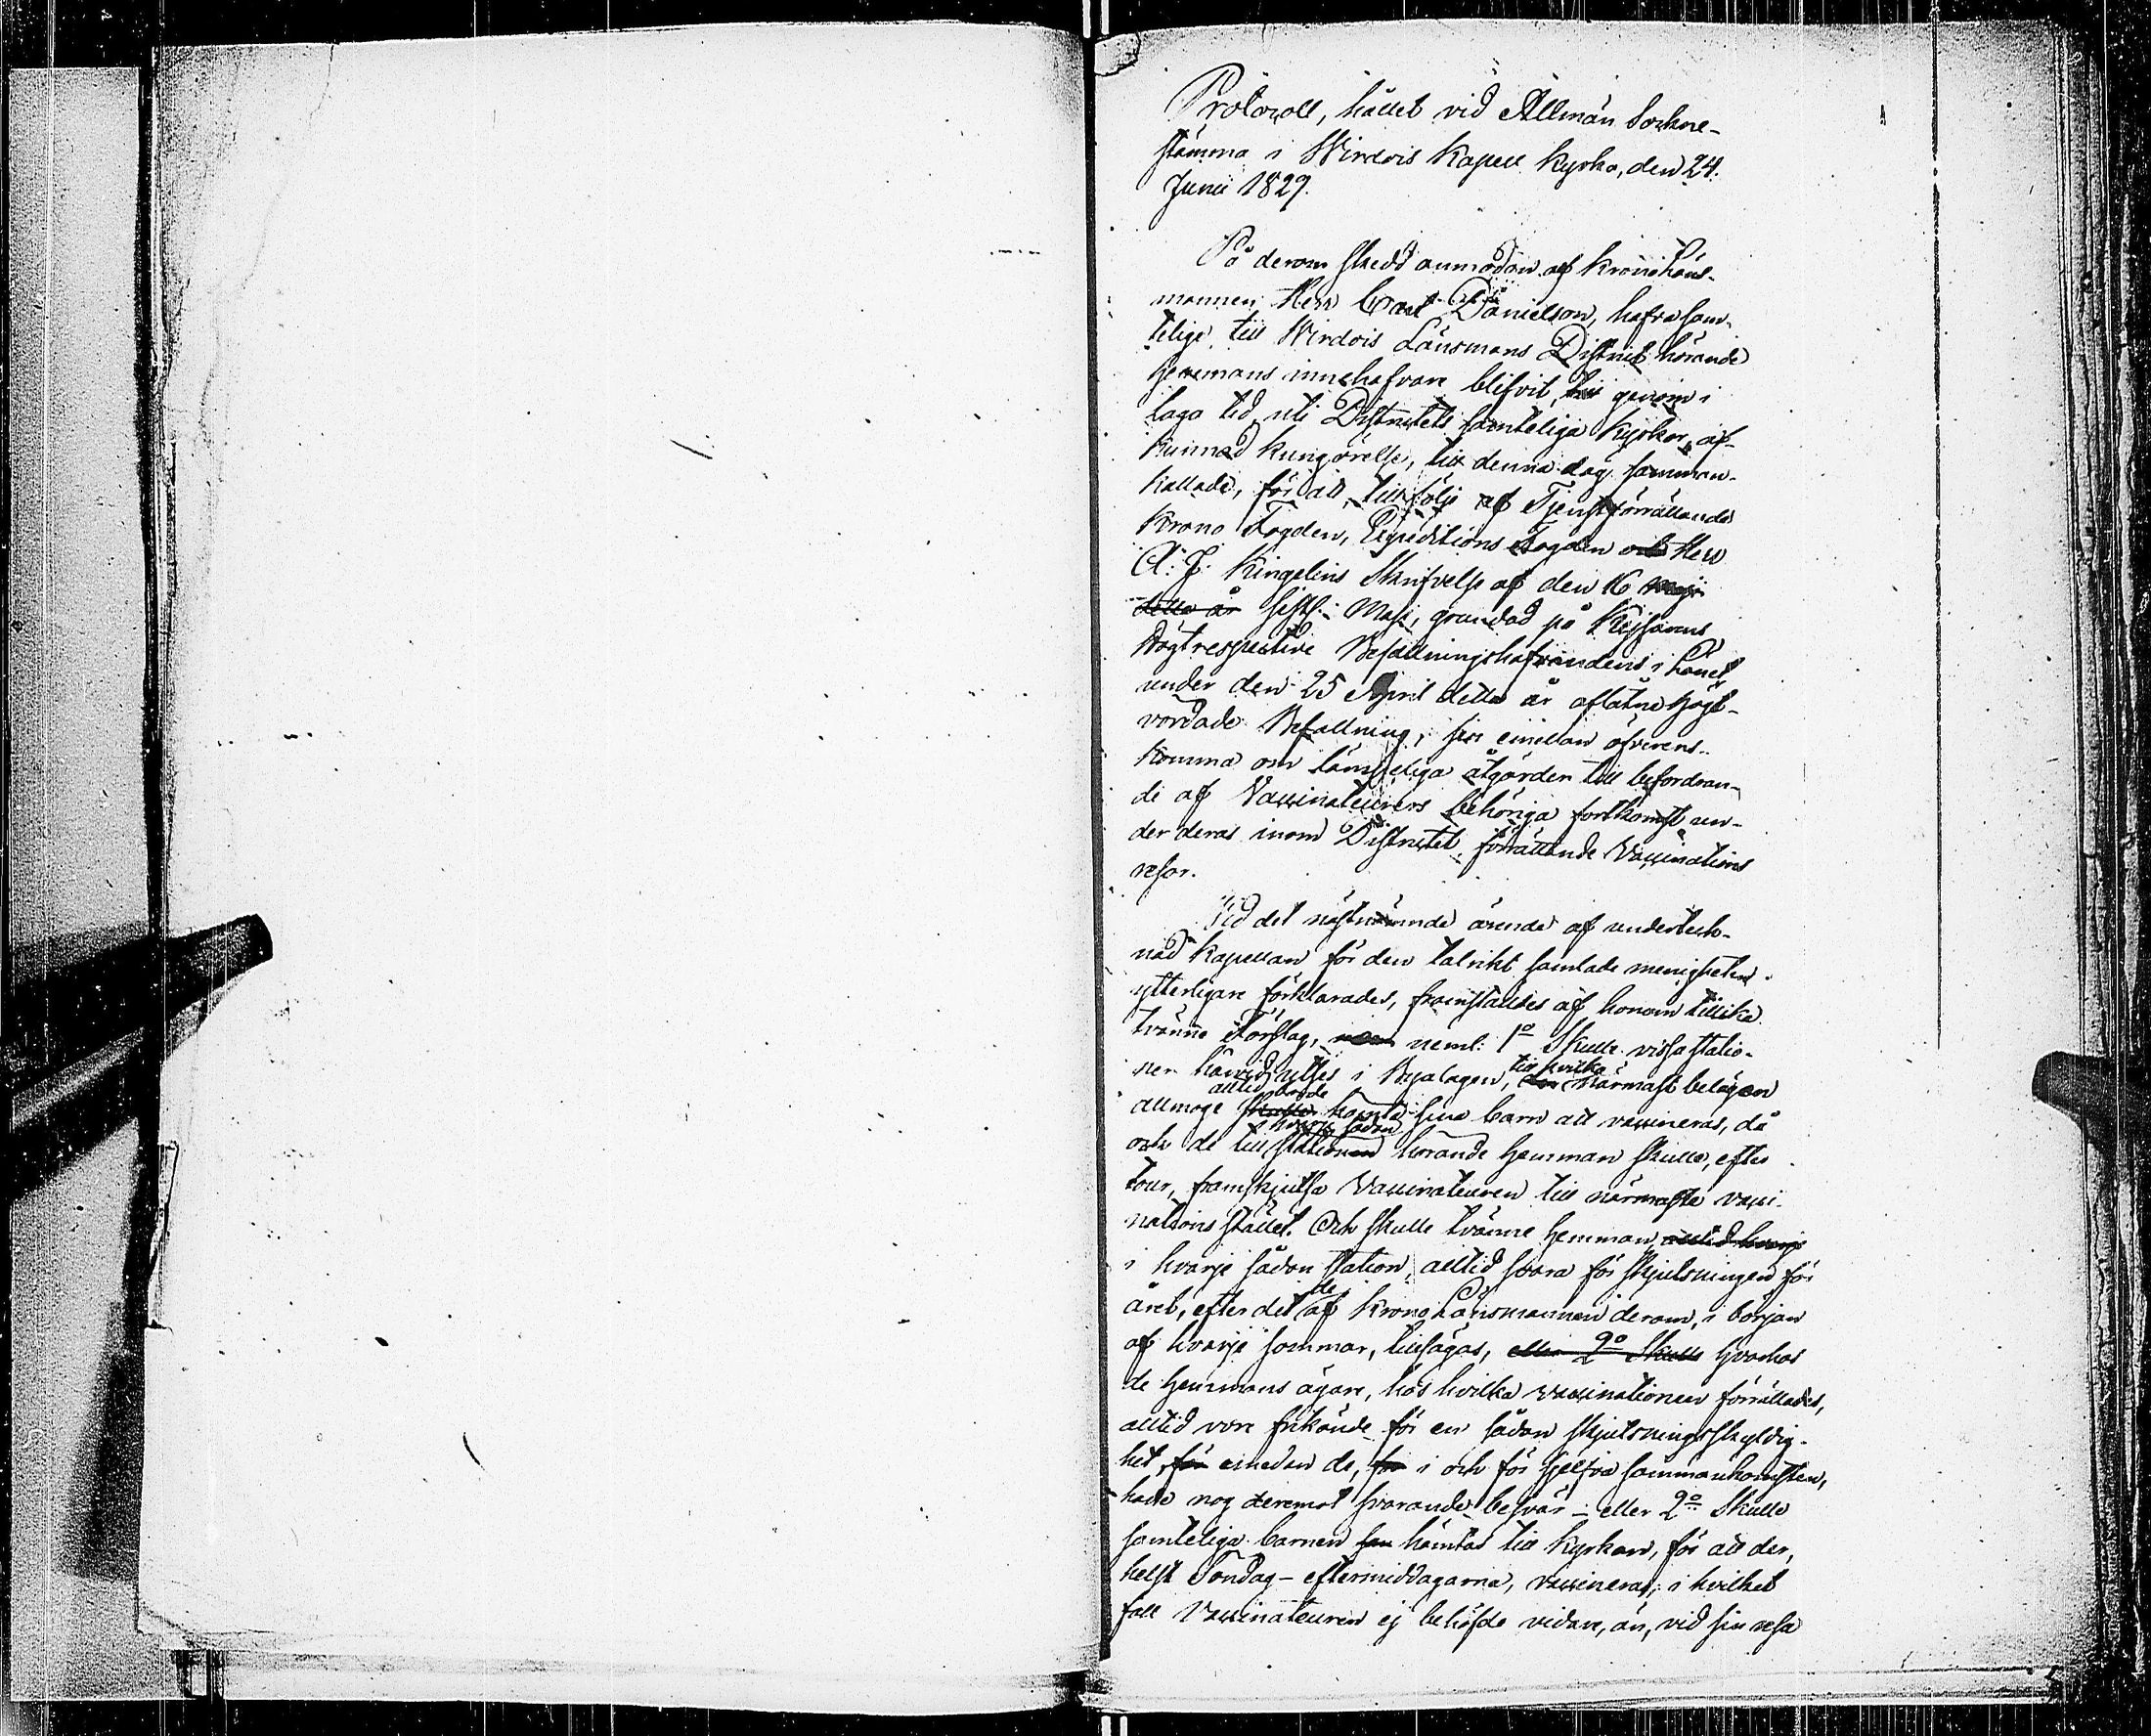 Protocoll, hållet vid Allmän Sockne-
stämma i Wirdois Kapell Kyrka, den 24.
Junii 1829.
På derom skedd anmodan af Kronoläns-
mannen Herr Carl Danielson, hafva sam-
telige till Wirdois Länsmans District hörande
hemmans innehafvare blifvit, genom i
laga tid uti Districtets samteliga Kyrkor, af-
kunnad kungörelse, till denna dag samman-
kallade, för att, till följe af Tjenstförrättande
Krono Fogden, Expeditions Fogden Herr
A: J: Kingelins Skrifvelse af den 16
detta år sistl: Maji, grundad på Kejsarens
Högtrespective Befallningshafvandens i Länet
under den 25 April detta år aflåtne högt-
vördade Befallning, sins emellan öfverens-
komma om lämpeliga åtgärder till befordran-
de af Vaccinateurers behöriga fortkomst un-
der deras inom Districtet förrättande Vaccinations
resor.
Vid det nästnämnde ärende af underteck-
nad Kapellan för den talrikt samlade menigheten
ytterligare förklarades, framställdes af honom tillika
tvänne Förslag, neml: 1o Skulle vissa statio-
ner härvid utses i Byalagen, till hvilka närmast belägen
allmoge alltid borde hämta sina barn att vaccineras, då
och de till hvarje sådan station hörande hemman skulle, efter
tour, framskjutsa Vaccinateuren till närmaste vacci-
nations stället. Och skulle tvänne hemman alltid hvarje
i hvarje sådan station, alltid svara för skjutsningen för
året, efter det de af Krono Länsmannen derom, i början
af hvarje sommar, tillsägas, eller 2o Skulle hvarhos
de hemmans ägare, hos hvilka vaccinationen förrättades,
alltid vore frikände för en sådan skjutsningsskyldig-
het, för emedan de, för i och för sjelfva sammankomsten,
hade nog deremot svarande besvär – eller 2o Skulle
samteliga barnen hämtas till Kyrkan, för att der,
helst Söndag-eftermiddagarna, vaccineras, i hvilket
fall Vaccinateuren ej behöfde vidare, än, vid sin resa